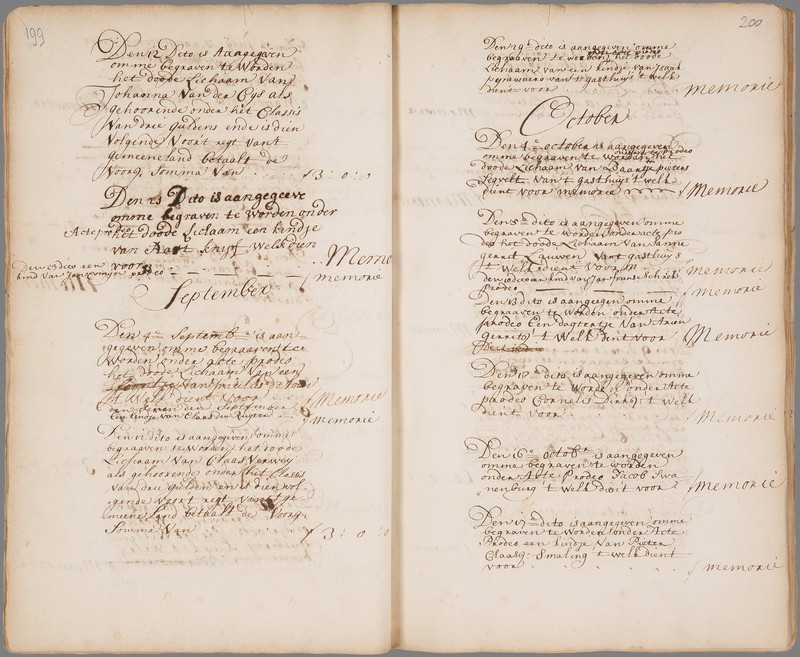 199
Den 12 Dito is Aangegeven
omme begraven te Worden
het doode Lichaam Van
Johanna Van der Cijs als
gehoorende onder het Classis
Van drie guldens ende is dien
Volgende Voort regt Vant
gemeeneland betaalt de
Voorg. Somma Van ƒ 3:0:0
Den 23 Dito is aangegeeve
omme begraven te worden onder
Acte prodeo het doode Liclaam een kindje
van Aart knijf Welk dien
voor Memorie
Den dito een
kind Van prodeo memorie
September
Den 4en Septemb is aan
gegeven omme begraaven te
Worden onder acte prodeo
het doode Lichaam Van een
Van
t Welk dient Voor Memorie
den den September
Een kindje van Claas memorie
Den dito is aangegeven omme
begraaven te Worden het doode
Lichaam Van Claas Verweij
als gehoorende onder het Classis
Van drie gulden en is dien vol
gende Voort regt Vant ge
meene Land betaalt de Voorg
Somma Van ƒ 3:0:0
200
Den 29en dito is aangegeven omme
onder acte prodeo
begraaven te worden het doode
Lichaam van een kindje van Isaak
van t gasthuijs t welk
dient voor Memorie
October
Den 4en october is aangegeven
omme begraven te Worden het
doode Lichaam Van pieters
Van t gasthuijs t welk
dient voor memorie Memorie
Den 5en dito is aangegeven omme
begraven te worden onder acte pro
deo het doode Lichaam Van Janne
gerrit Lauwen Vant gasthuijs
t Welk dient Voor Memorie
kind van Jan
prodeo memorie
Den 13 dito is aangegen omme
begraaven te Worden onder Acte
prodeo Een dogtertje Van Arien
Gerrits t Welk dient voor Memorie
Den dito is aangegeven omme
begraven te Worden onder Acte
prodeo Cornelis Dirks t Welk
dient voor Memorie
Den 16en octobr is aangegeven
omme begraven te worden
onder Acte Prodeo Jacob Swa
nenburg t welk dient voor Memorie
Den 17en dito is aangegeven omme
begraven te Worden onder Acte
Prodeo een kindje Van Pieter
Claasz Smaling t welk dient
voor memorie